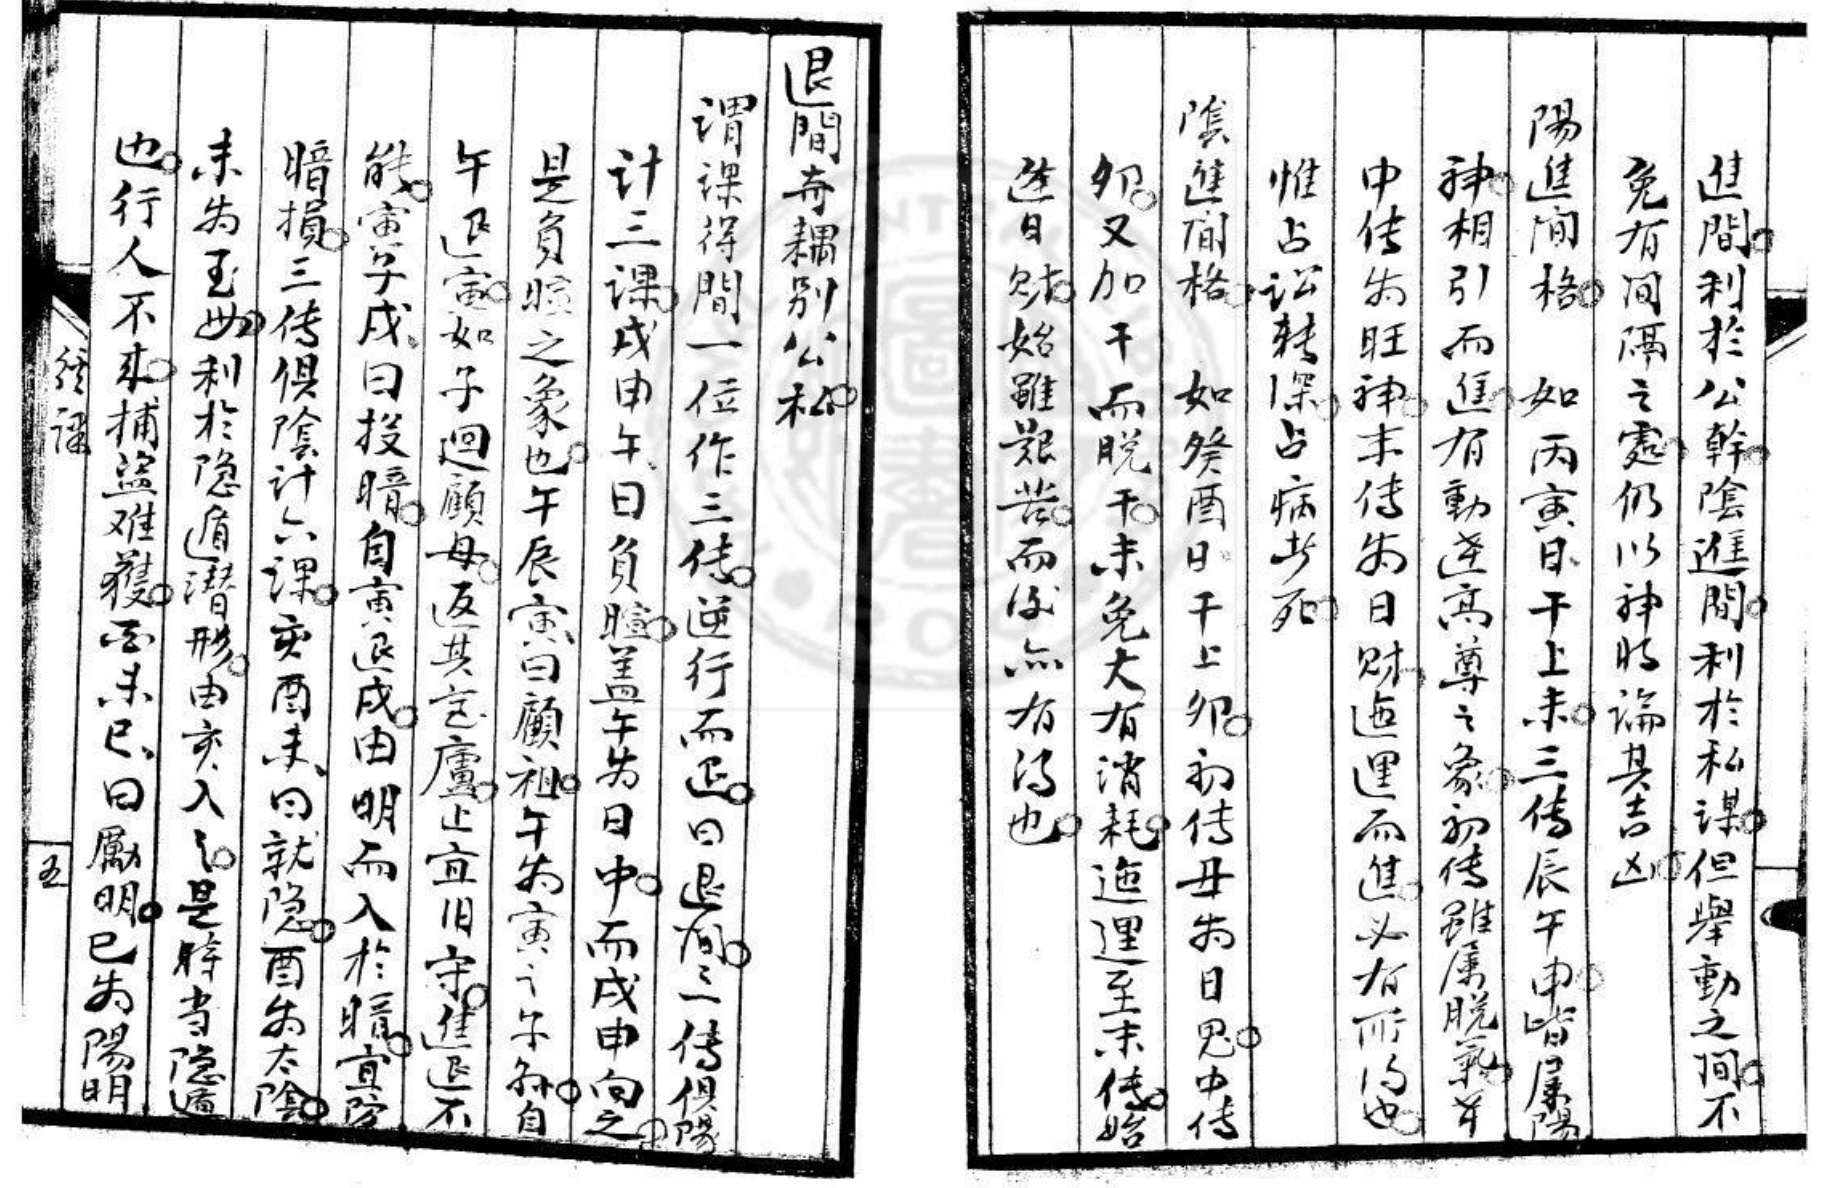 進間利於公幹陰進間利於私謀但舉動之間不
免有间隔之處仍以神将論其吉凶
陽進间格 如丙寅日干上未三傳辰午申皆屬陽
神相引而進有動逹高尊之象初傳雖属脱氣並
中傳为旺神末傳为日财迤逦而進必有所得也
惟占訟转深占病此死
陰進间格 如癸酉日干上卯初傳丑为日鬼中傳
卯又加干而脱干未免大有消耗迤逦至末傳始
逢日财始雖艱苦而後亦有得也
退間奇耦別公私
謂課得間一位作三傳逆行而退曰退间三傳俱陽
计三課戌申午曰負暄盖午为日中而戌申向之
是負暄之象也午辰寅曰顧祖午为寅之子孙自
午退寅如子迴顧母返其宅廬止宜旧守進退不
能寅子戌曰投暗自寅退戌由明而入於暗宜防
暗損三傳俱陰计六課亥酉未曰就隐酉为太陰
未为玉女利於隐遁潜形由亥入之是時当隐遁
也行人不来捕盗难獲酉未巳曰勵明巳为陽明
經課
五